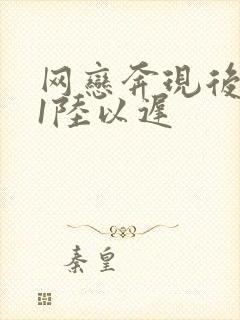 网戀奔現後
1陸以遲
秦皇